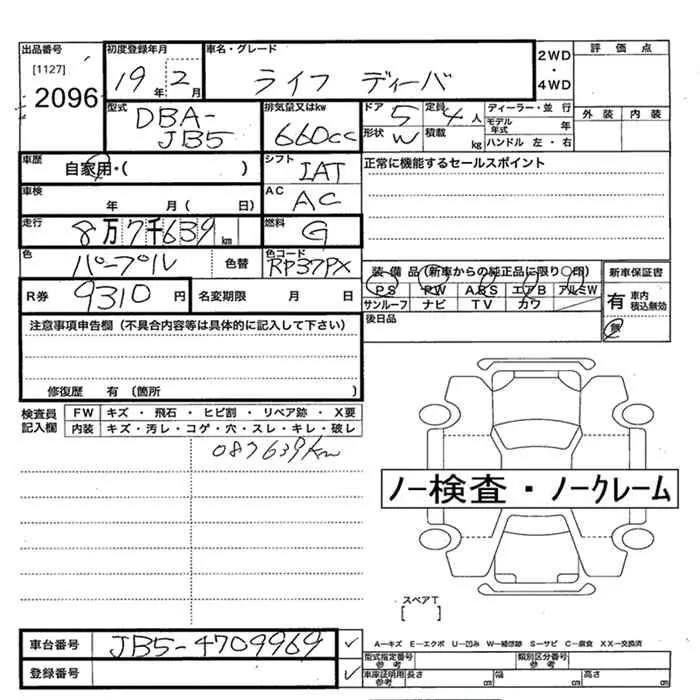 出品番号
[1127]
2096
初度登録年月
19年 2月
車名・グレード
ライフ ディーバ
2WD
・
4WD
評価点
外装 内装
型式
DBA-
JB5
排気量又はkw
660cc
ドア 5
定員 4人
形状 W
積載 kg
ディーラー・並 行
モデル年式 年
ハンドル 左・右
車歴
自家用・( )
シフト
IAT
正常に機能するセールスポイント
車検
年 月( 日)
AC
AC
走行
8万7千639km
燃料
G
色
パープル
色替
色コード
RP37PX
装備品(新車からの純正品に限り○印)
PS PW ABS エアB アルミW
サンルーフ ナビ TV カワ
新車保証書
有 車内積込無効
無
R券
9310円
名変期限 月 日
後日品
注意事項申告欄(不具合内容等は具体的に記入して下さい)
修復歴 有(箇所 )
検査員
記入欄
FW キズ・飛石・ヒビ割・リペア跡・X要
内装 キズ・汚レ・コゲ・穴・スレ・キレ・破レ
087639km
ノー検査・ノークレーム
スペアT
[ ]
車台番号
JB5-4709969
登録番号
A―キズ E―エクボ U―凹み W―補修跡 S―サビ C―腐食 XX―交換済
型式指定番号
参考
類別区分番号
参考
車庫証明用
参考
長さ cm 幅 cm 高さ cm